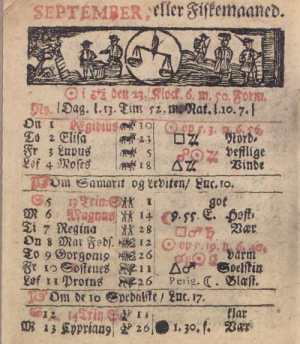 SEPTEMBER, eller Fiskemaaned.
☉ i ♎ den 23. Klock. 6. m. 50. Form.
Ny. Dag. l. 13. Tim 52. m. Nat. l. 10. 7.
On 1 Ægidius 30 ☉ op 5. 3. n. 6. 56.
To 2 Elisa 23 Nord-
Fr 3 Lupus 5 vestlige
Løf 4 Moses 18 Vinde
Om Samarit og Leviten/ Luc. 10.
S 5 13 Trin. 1 got
M 6 Magnus 14 9. 55. E. Høst-
Ti 7 Regina 28 Vær
On 8 Mar Fødf. 12 ☉ op 5. 19. n. 6. 40.
To 9 Gorgon9 26 varm
Fr 10 Sostenes 11 Soelskin
Løf 11 Protus 26 Perig. ☾. Blæst.
Om de 10 Spedalske/ Luc. 17.
S 12 14 Trin. 11 klar
M 13 Cyprian9 26 1. 30. f. Vær